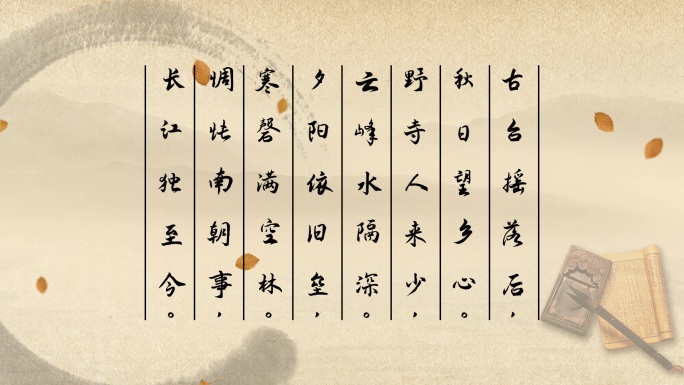 古台摇落后，
秋日望乡心。
野寺人来少，
云峰水隔深。
夕阳依旧垒，
寒磬满空林。
惆怅南朝事，
长江独至今。